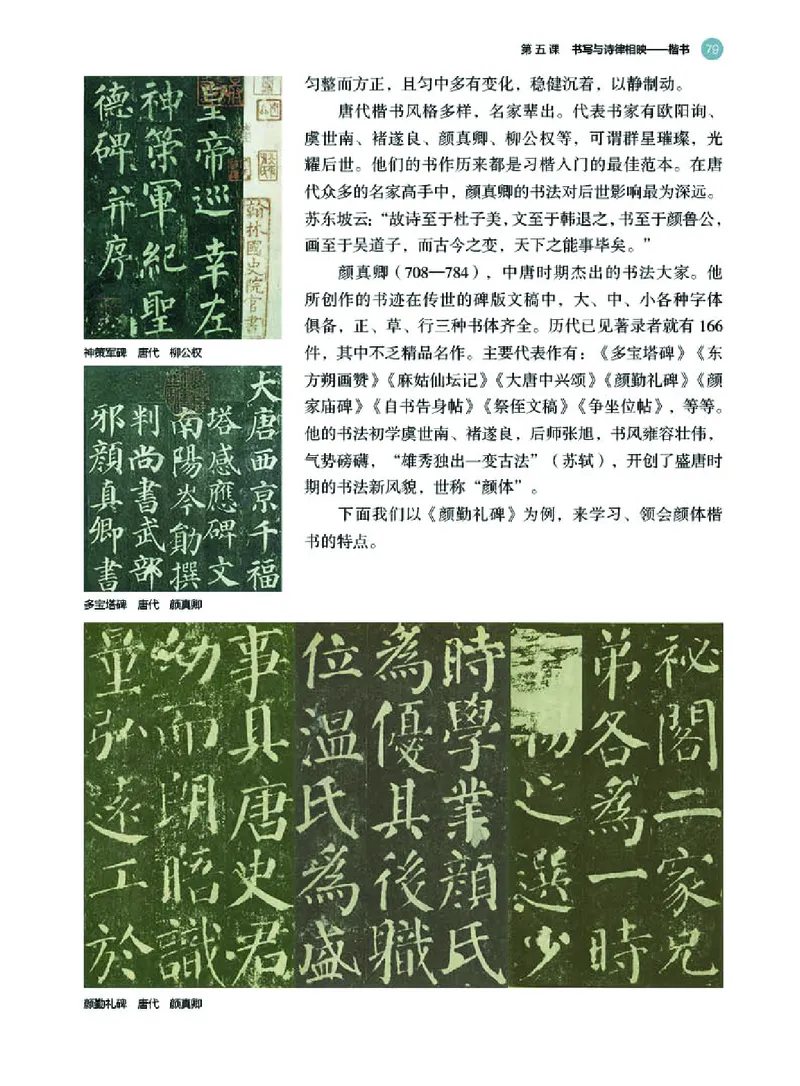 第五课 书写与诗律相映——楷书 79
皇帝巡幸左
神策軍紀聖
德碑并序
翰林國史院官書
神策军碑 唐代 柳公权
大唐西京千福
塔感應碑文
南陽岑勛撰
判尚書武部
邪顏真卿書
多宝塔碑 唐代 颜真卿
匀整而方正，且匀中多有变化，稳健沉着，以静制动。
唐代楷书风格多样，名家辈出。代表书家有欧阳询、
虞世南、褚遂良、颜真卿、柳公权等，可谓群星璀璨，光
耀后世。他们的书作历来都是习楷入门的最佳范本。在唐
代众多的名家高手中，颜真卿的书法对后世影响最为深远。
苏东坡云：“故诗至于杜子美，文至于韩退之，书至于颜鲁公，
画至于吴道子，而古今之变，天下之能事毕矣。”
颜真卿（708—784），中唐时期杰出的书法大家。他
所创作的书迹在传世的碑版文稿中，大、中、小各种字体
俱备，正、草、行三种书体齐全。历代已见著录者就有 166
件，其中不乏精品名作。主要代表作有：《多宝塔碑》《东
方朔画赞》《麻姑仙坛记》《大唐中兴颂》《颜勤礼碑》《颜
家庙碑》《自书告身帖》《祭侄文稿》《争坐位帖》，等等。
他的书法初学虞世南、褚遂良，后师张旭，书风雍容壮伟，
气势磅礴，“雄秀独出一变古法”（苏轼），开创了盛唐时
期的书法新风貌，世称“颜体”。
下面我们以《颜勤礼碑》为例，来学习、领会颜体楷
书的特点。
祕閣二家兄
弟各為一時
之選少
時學業顏氏
為優其後職
位溫氏為盛
事具唐史君
幼而朗晤識
量弘遠工於
颜勤礼碑 唐代 颜真卿